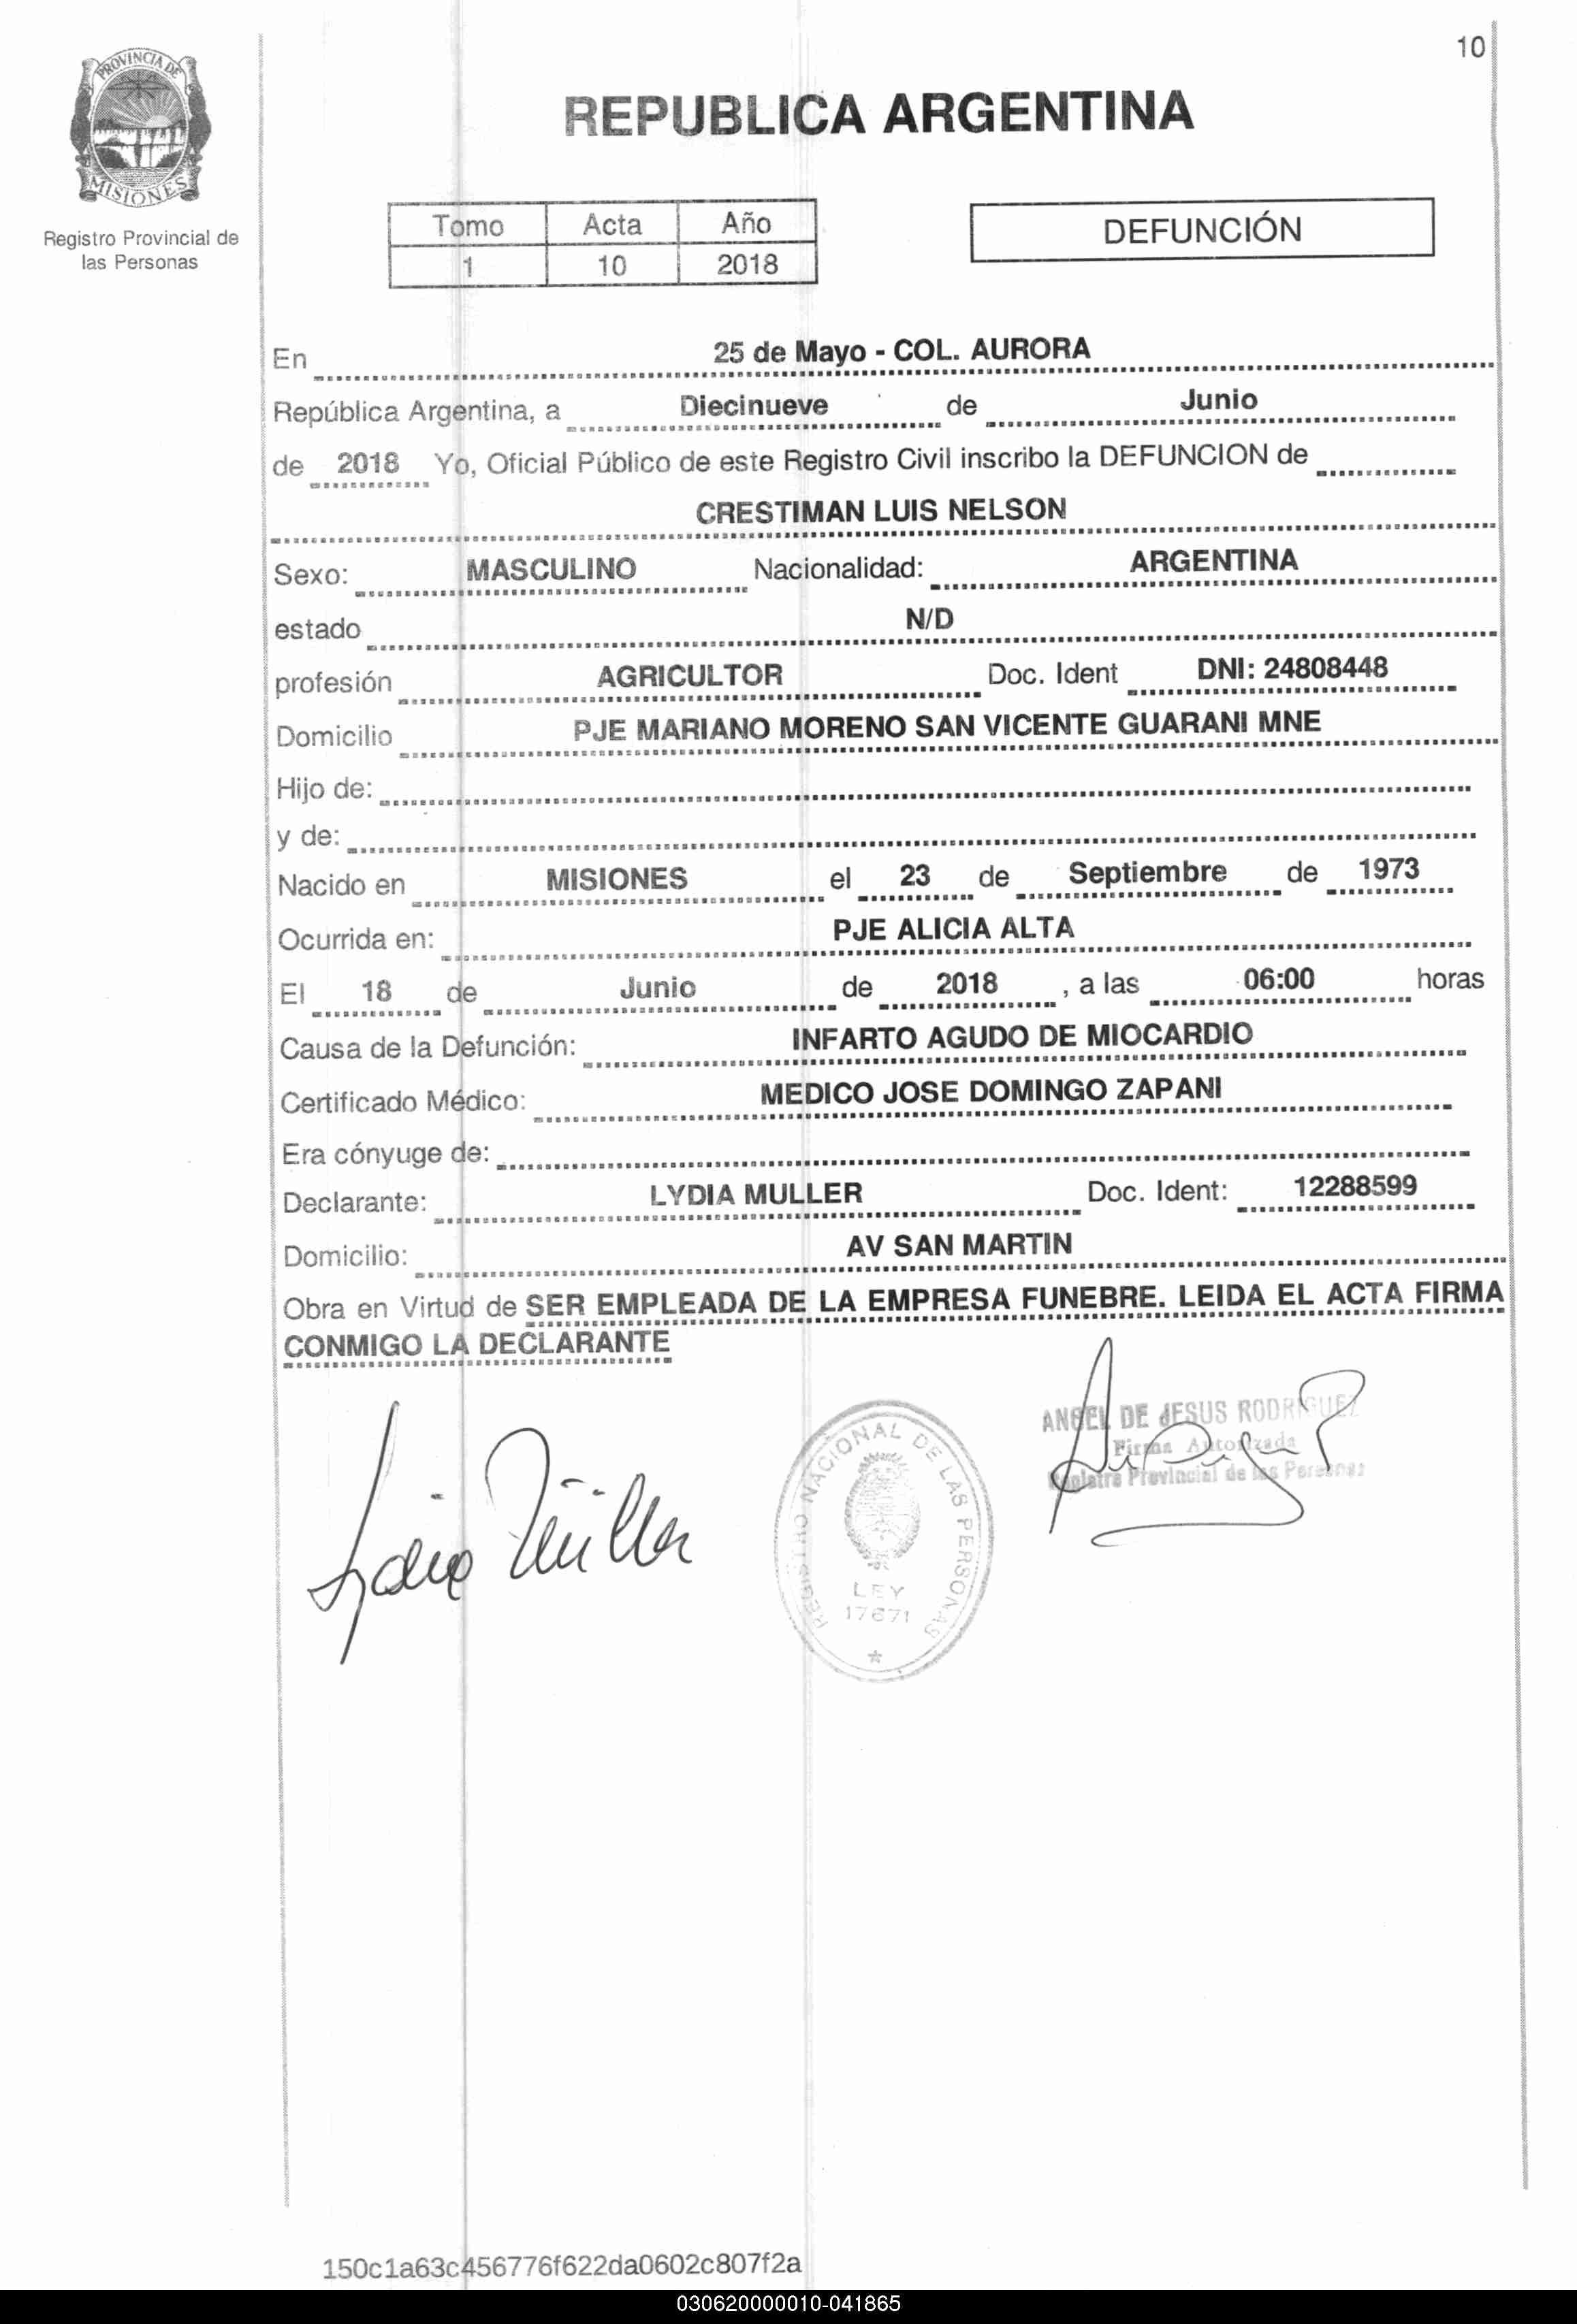 10
PROVINCIA DE
MISIONES
Registro Provincial de
las Personas
REPUBLICA ARGENTINA
Tomo Acta Año
1 10 2018
DEFUNCIÓN
En 25 de Mayo - COL. AURORA
República Argentina, a Diecinueve de Junio
de 2018 Yo, Oficial Público de este Registro Civil inscribo la DEFUNCION de
CRESTIMAN LUIS NELSON
Sexo: MASCULINO Nacionalidad: ARGENTINA
estado N/D
profesión AGRICULTOR Doc. Ident DNI: 24808448
Domicilio PJE MARIANO MORENO SAN VICENTE GUARANI MNE
Hijo de:
y de:
Nacido en MISIONES el 23 de Septiembre de 1973
Ocurrida en: PJE ALICIA ALTA
El 18 de Junio de 2018 , a las 06:00 horas
Causa de la Defunción: INFARTO AGUDO DE MIOCARDIO
Certificado Médico: MEDICO JOSE DOMINGO ZAPANI
Era cónyuge de:
Declarante: LYDIA MULLER Doc. Ident: 12288599
Domicilio: AV SAN MARTIN
Obra en Virtud de SER EMPLEADA DE LA EMPRESA FUNEBRE. LEIDA EL ACTA FIRMA
CONMIGO LA DECLARANTE
Lidia Müller
REGISTRO NACIONAL DE LAS PERSONAS
LEY
17671
ANGEL DE JESUS RODRIGUEZ
Firma Autorizada
Registro Provincial de las Personas
150c1a63c456776f622da0602c807f2a
030620000010-041865